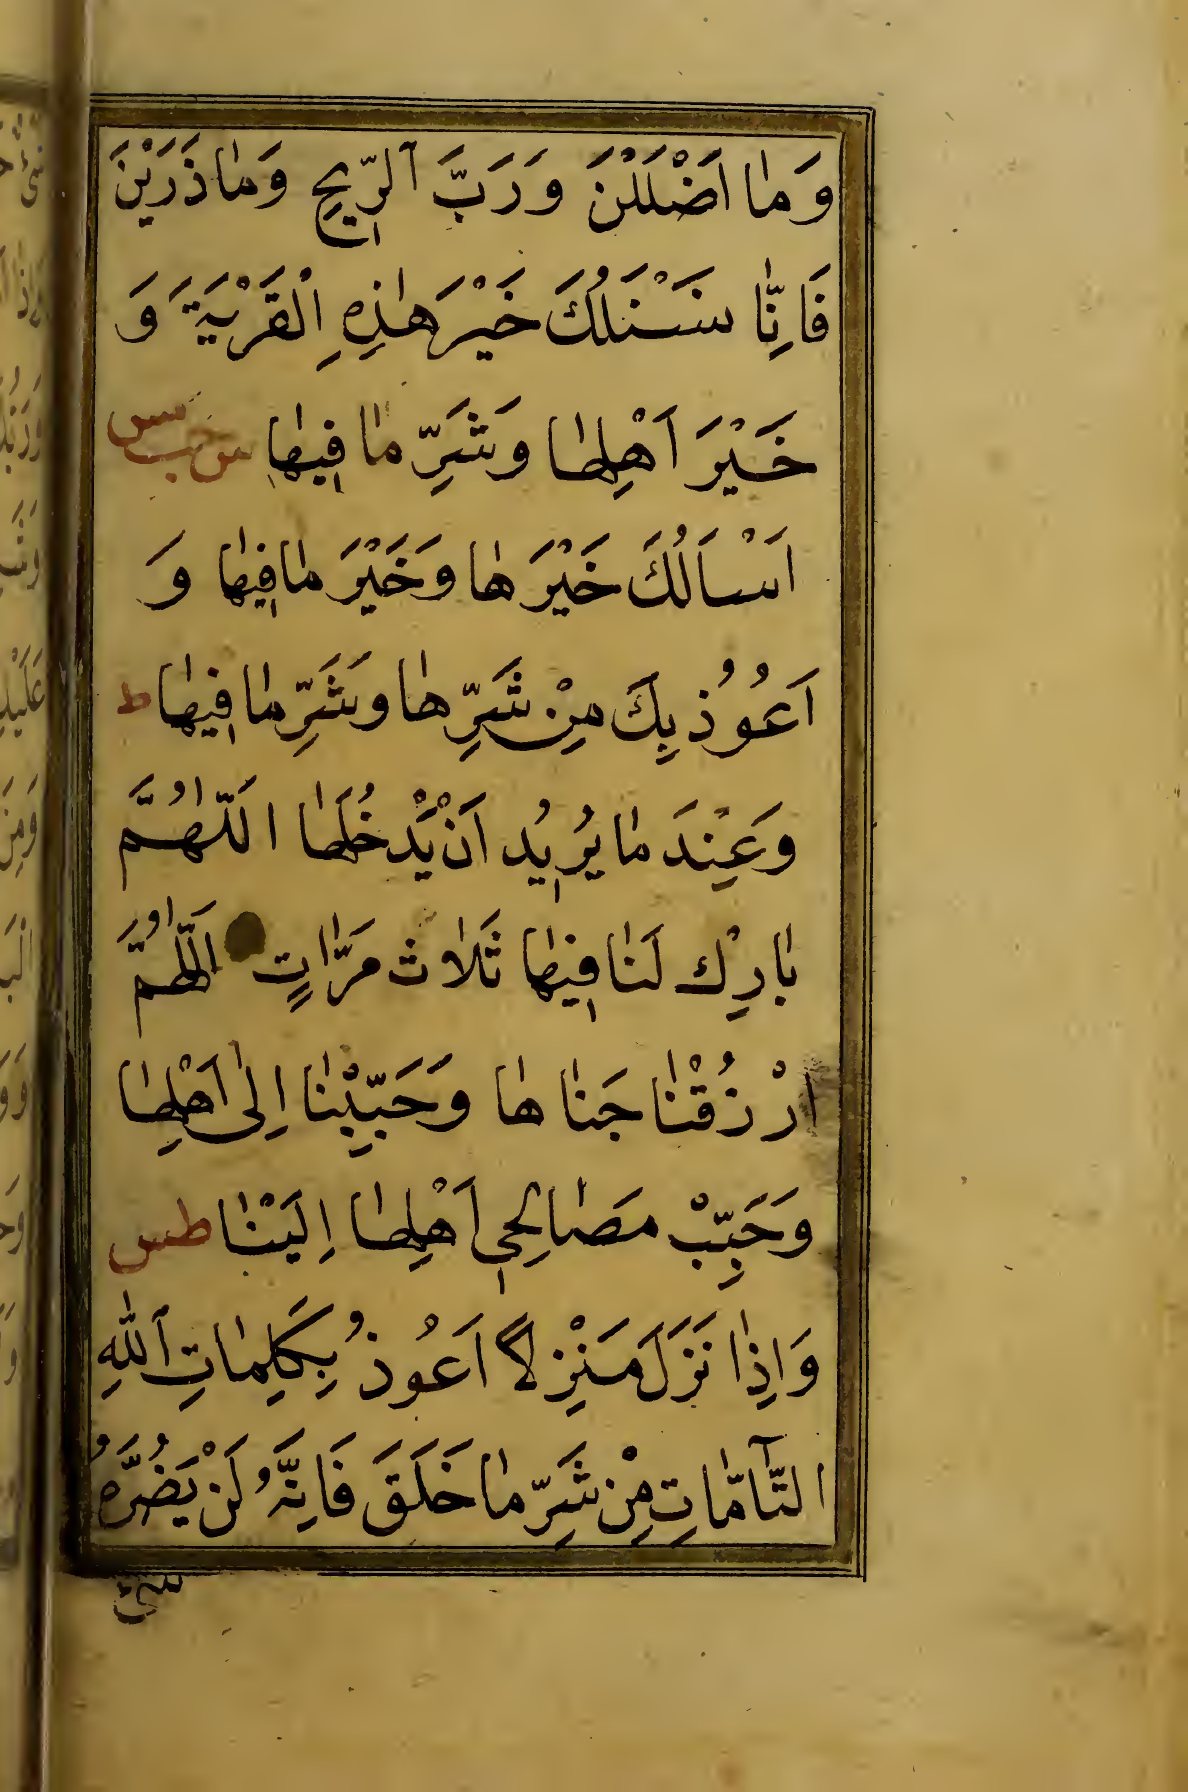 وَمٰا اَضْلَلْنَ وَرَبَّ ٱلرِّيحِ وَمٰا ذَرَيْنَ
فَاِنّٰا نَسْئَلُكَ خَيْرَ هٰذِهِ الْقَرْيَةِ وَ
خَيْرَ اَهْلِهٰا وَشَرِّ مٰا فِيهٰا س حب مس
اَسْاَلُكَ خَيْرَهٰا وَخَيْرَ مٰا فِيهٰا وَ
اَعُوُذُ بِكَ مِنْ شَرِّهٰا وَشَرِّ مٰا فِيهٰا ط
وَعِنْدَ مٰا يُرِيُد اَنْ يَدْخُلَهٰا اَللّٰهُمَّ
بٰارِكْ لَنٰا فِيهٰا ثَلٰاث مَرّٰاتٍ اَللّٰهُمَّ
ارْزُقْنٰا جَنٰاهٰا وَحَبِّبْنٰا اِلٰى اَهْلِهٰا
وَحَبِّبْ صَٰالِحِي اَهْلِهٰا اِلَيْنٰا طس
وَاِذٰا نَزَلَ مَنْزِلاً اَعُوذُ بِكَلِمٰاتِ ٱللّٰهِ
التَّآمّٰاتِ مِنْ شَرِّ مٰا خَلَقَ فَاِنَّهُ لَنْ يَضُرَّهُ
شئ